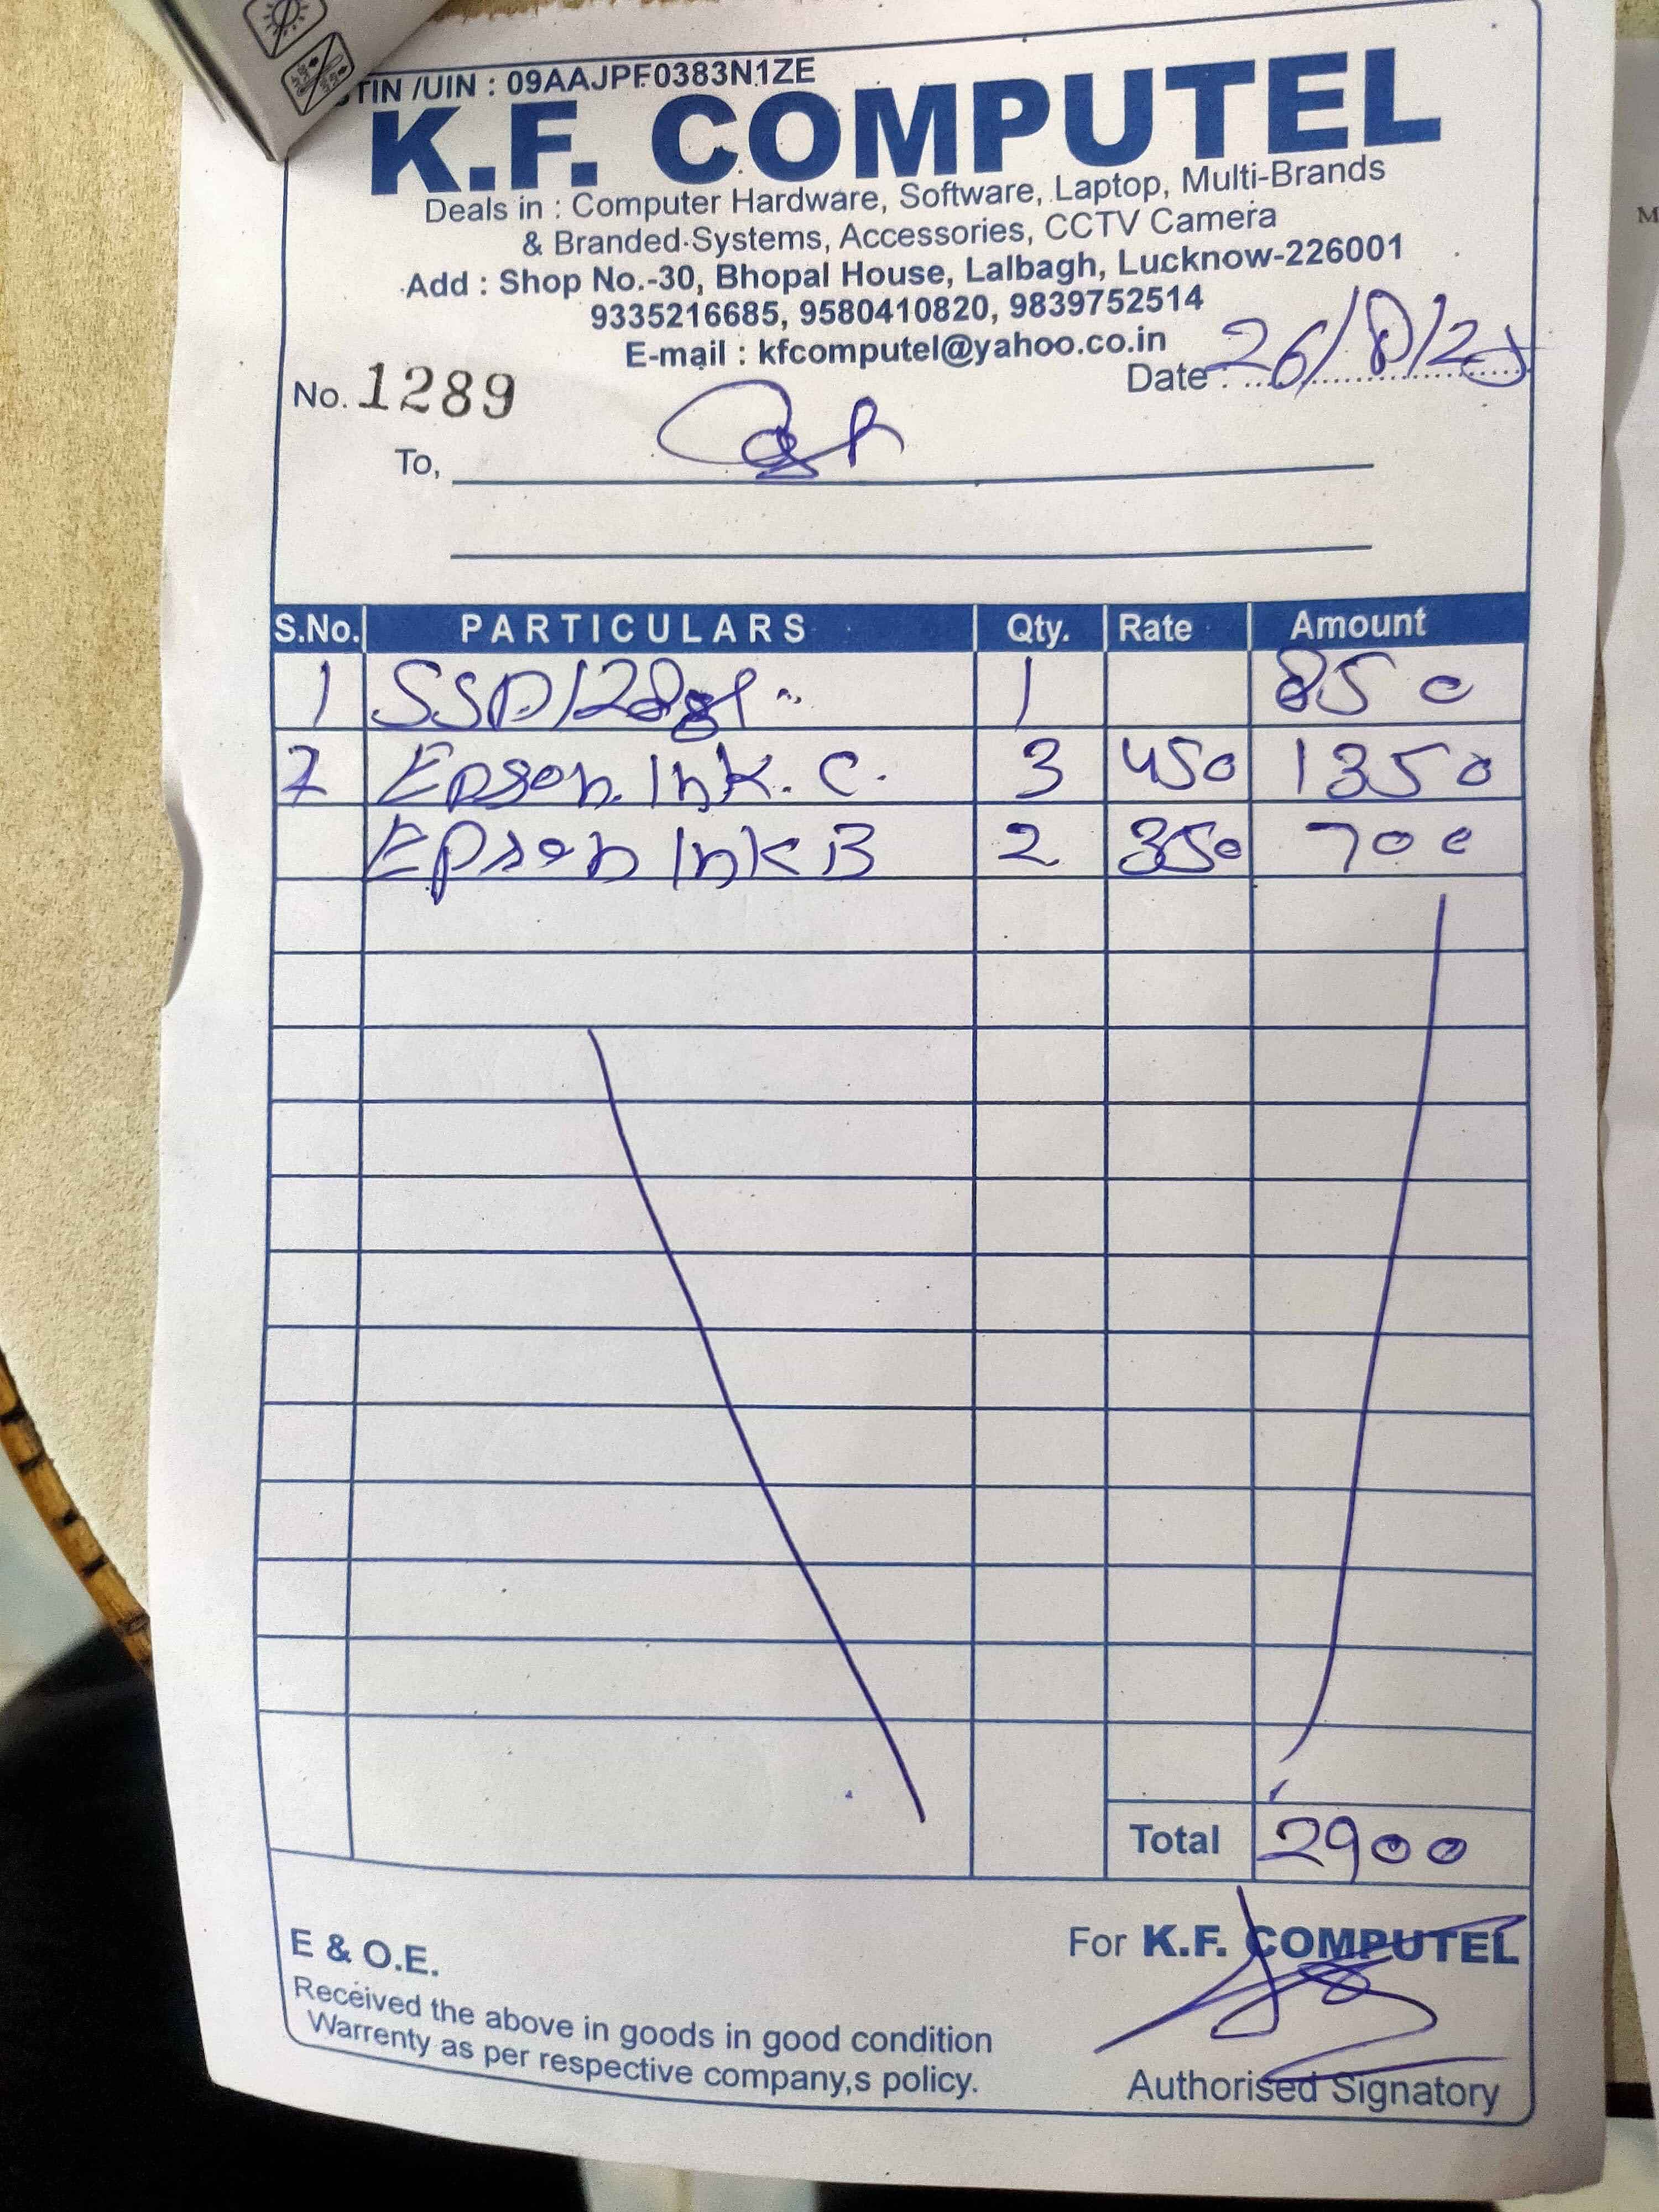 TIN /UIN : 09AAJPF0383N1ZE
K.F. COMPUTEL
Deals in : Computer Hardware, Software, Laptop, Multi-Brands
& Branded Systems, Accessories, CCTV Camera
Add : Shop No.-30, Bhopal House, Lalbagh, Lucknow-226001
9335216685, 9580410820, 9839752514
E-mail : kfcomputel@yahoo.co.in
No. 1289 Date : 26/8/25
To, Cash
S.No. PARTICULARS Qty. Rate Amount
1 SSD 128 1 850
2 Epson Ink. C. 3 450 1350
Epson Ink B 2 350 700
Total 2900
E & O.E.
For K.F. COMPUTEL
Received the above in goods in good condition
Warrenty as per respective company,s policy.
Authorised Signatory